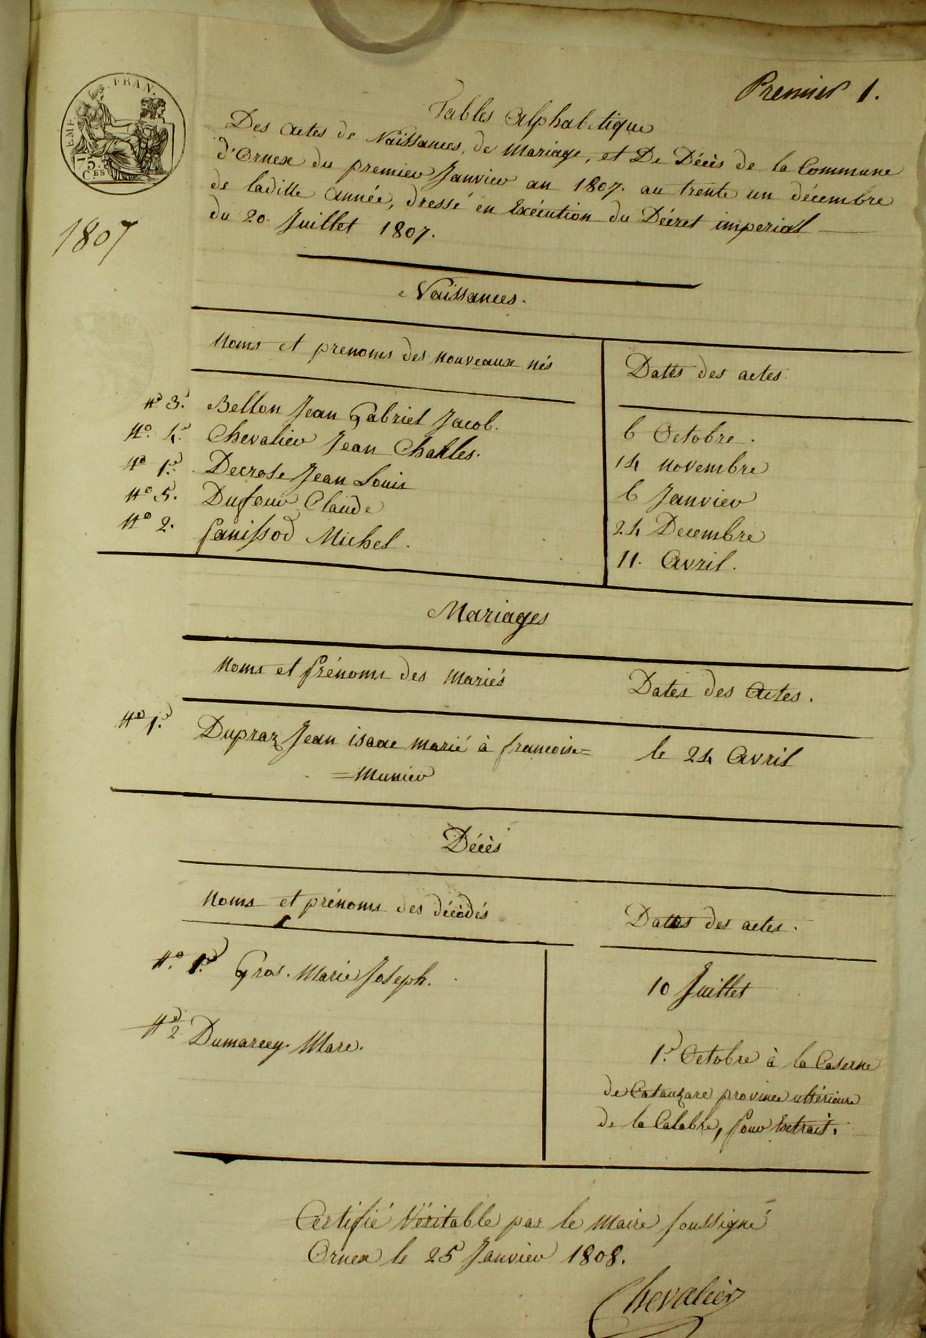 Premier 1.
EMP. FRAN.
75
CES
1807
Tables Alphabetique
Des actes de Naissances, de Mariage, et De Décès de la Commune
d'Ornex du premier Janvier an 1807. au trente un décembre
de ladille année, dressé en Exécution du Décret imperial
du 20 Juillet 1807.
Naissances.
Noms et prenoms des nouveaux nés Dates des actes
No 3. Bellon Jean Gabriel Jacob. 6 Octobre.
No. 4. Chevalier Jean Challes. 14 novembre
No 1er Decrose Jean Louis 6 Janvier
No 5. Dufour Claude 24 Decembre
No 2. Panissod Michel. 11. Avril.
Mariages
Noms et prénoms des Mariés Dates des Actes.
No 1er Dupraz Jean isaac marié à francoise= le 24 Avril
=Munier
Décès
Noms et prénoms des décédés Dates des actes.
No. 1er Gros. Marie Joseph. 10 Juillet
No 2 Dumarcey. Marc. 1er Octobre à la Caserne
de Catanzare province ultérieure
de la Calabre, pour Extrait.
Certifié Véritable par le Maire soussigné
Ornex le 25 Janvier 1808.
Chevalier